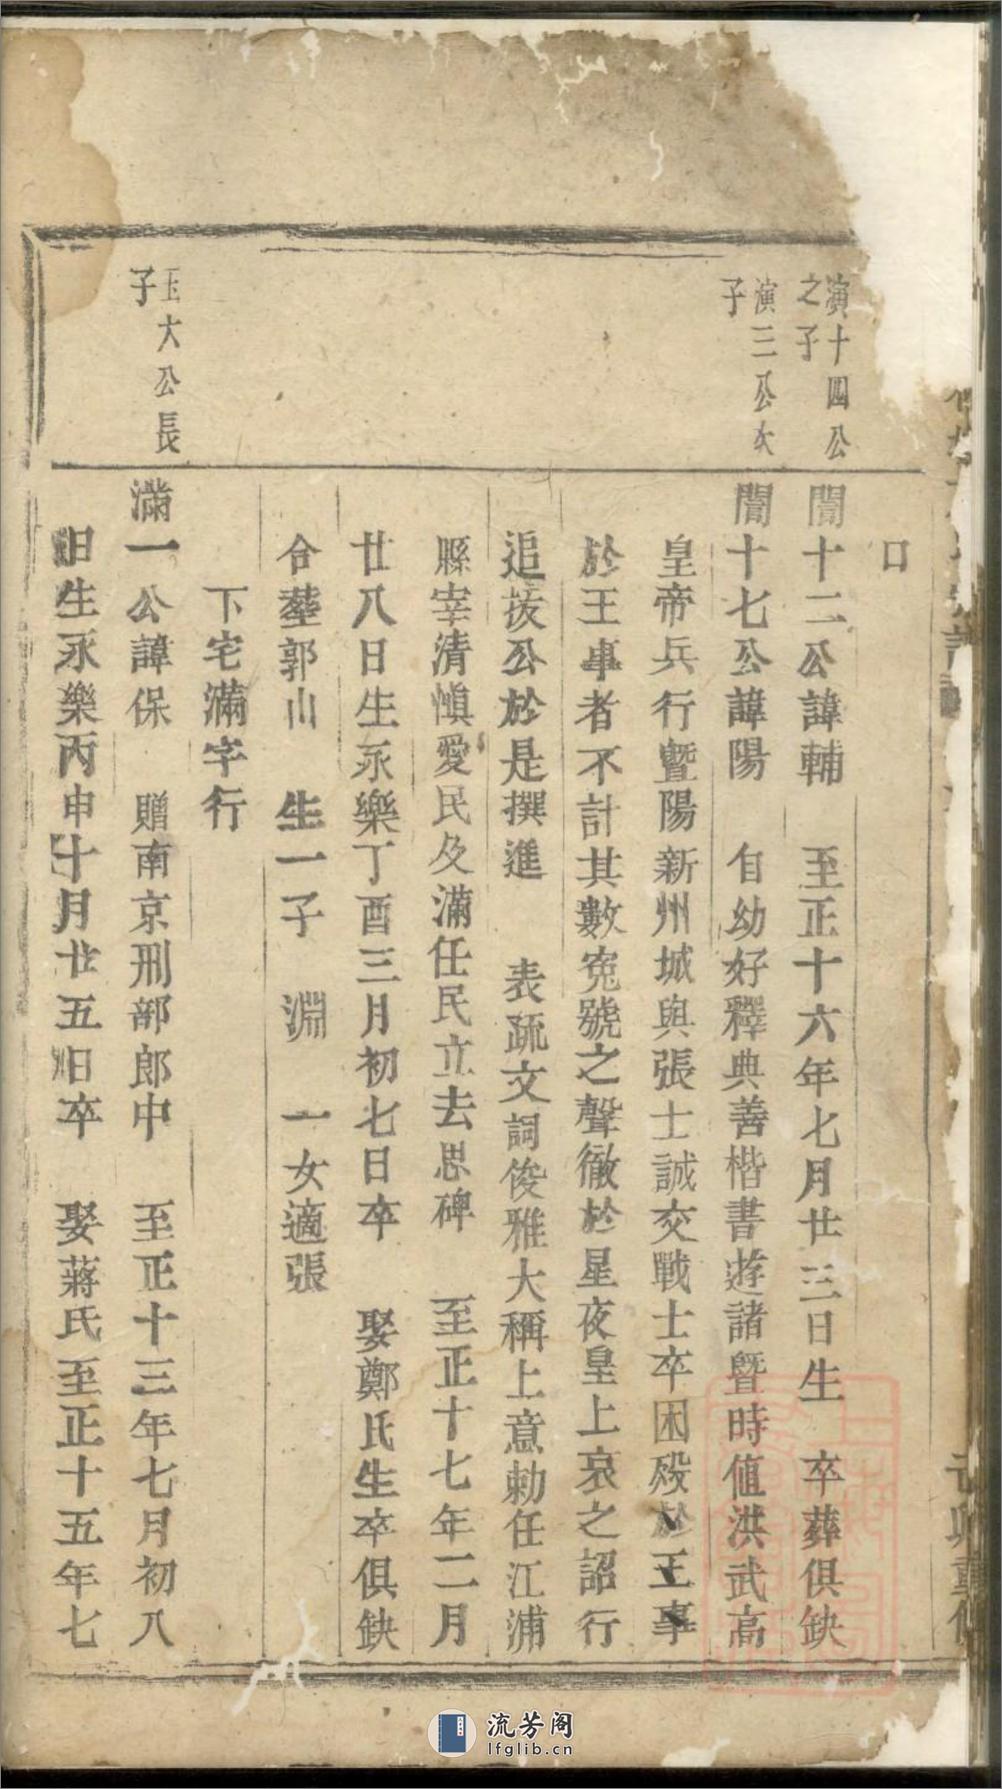 口
演十四公
之子
誾十二公諱輔　至正十六年七月廿三日生　卒葬俱缺
演三公次
子
誾十七公諱陽　自幼好釋典善楷書遊諸暨時値洪武高
皇帝兵行暨陽新州城與張士誠交戰士卒困歿於王事
於王事者不計其數寃號之聲徹於星夜皇上哀之詔行
追拔公於是撰進　表疏文詞俊雅大稱上意勅任江浦
縣宰清愼愛民及滿任民立去思碑　至正十七年二月
廿八日生永樂丁酉三月初七日卒　娶鄭氏生卒俱缺
合塟郭山　生一子　淵　一女適張
下宅滿字行
玉大公長
子
滿一公諱保　贈南京刑部郎中　至正十三年七月初八
日生永樂丙申十月廿五日卒　娶蔣氏至正十五年七
流芳阁
lfglib.cn